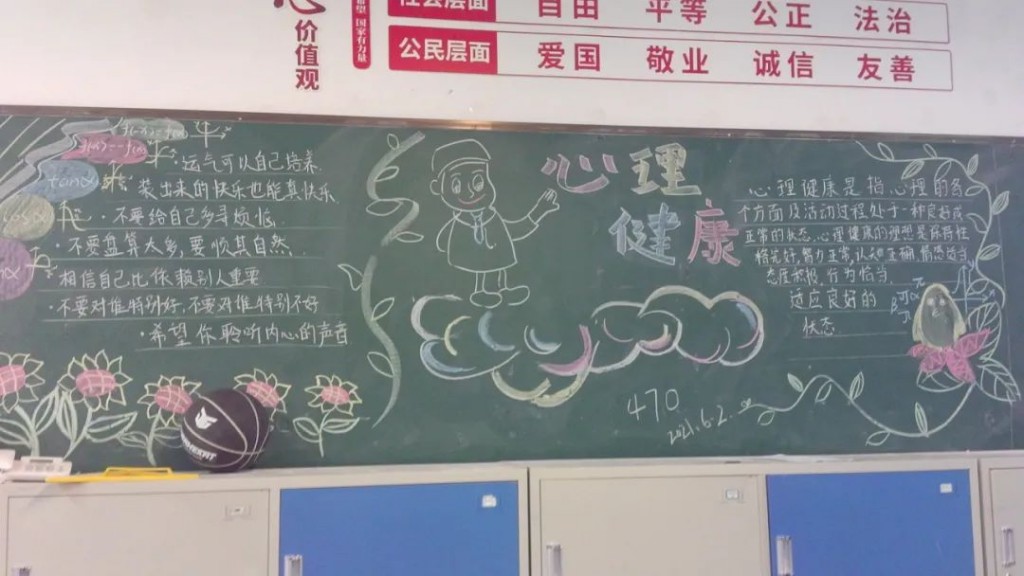 价值观
国家有力量
社会层面 自由 平等 公正 法治
公民层面 爱国 敬业 诚信 友善
运气可以自己培养
装出来的快乐也能真快乐
·不要给自己多寻烦恼
·不要盘算太多,要顺其自然
相信自己比依赖别人重要
·不要对谁特别好,不要对谁特别不好
·希望你聆听内心的声音
心理
健康
心理健康是指心理的各
个方面及活动过程处于一种良好或
正常的状态.心理健康的理想是保持性
格完好、智力正常、认知正确、情感适当
态度积极、行为恰当
适应良好的
状态
470
2021.6.2.